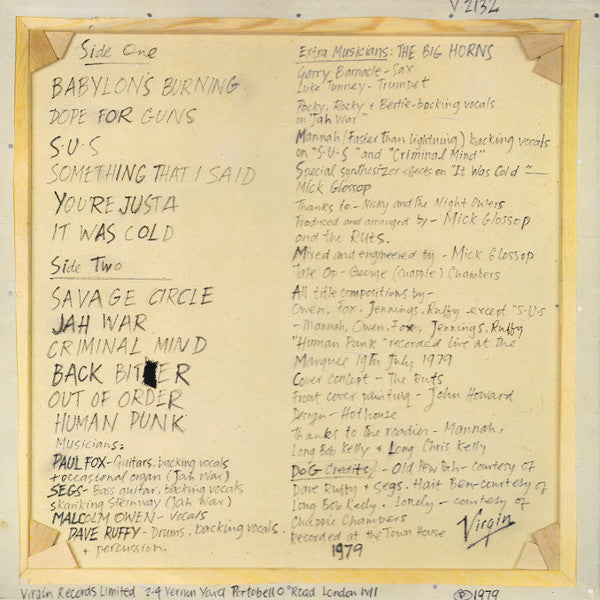 V 2132
Side One
BABYLON'S BURNING
DOPE FOR GUNS
S·U·S
SOMETHING THAT I SAID
YOU'RE JUST A
IT WAS COLD
Side Two
SAVAGE CIRCLE
JAH WAR
CRIMINAL MIND
BACK BITER
OUT OF ORDER
HUMAN PUNK
Musicians:
PAUL FOX - Guitars, backing vocals
+ occasional organ (Jah War)
SEGS - Bass guitar, backing vocals
skanking Steinway (Jah War)
MALCOLM OWEN - Vocals
DAVE RUFFY - Drums, backing vocals
+ percussion.
Extra Musicians: THE BIG HORNS
Garry Barnacle - Sax
Luke Tunney - Trumpet
Pocky, Rocky + Bertie - backing vocals
on "Jah War"
Mannah (Faster than lightning) backing vocals
on "S·U·S" and "Criminal Mind"
Special synthesizer effects on "It Was Cold" —
Mick Glossop
Thanks to - Nicky and The Night Owlers
Produced and arranged by - Mick Glossop
and the Ruts.
Mixed and engineered by - Mick Glossop
Tape Op - George (Chappie) Chambers
All title compositions by -
Owen, Fox, Jennings, Ruffy except "S·U·S
- Mannah, Owen, Fox, Jennings, Ruffy
"Human Punk" recorded live at the
Marquee 19th July 1979
Cover concept - The Ruts
Front cover painting - John Howard
Design - Hothouse
Thanks to the roadies - Mannah,
Long Bob Kelly + Long Chris Kelly
DoG Credits) - Old Pew Pah - courtesy of
Dave Ruffy + Segs. Hait Ben - courtesy of
Long Bob Kelly. Lonely - courtesy of
Chappie Chambers
Recorded at the Town House
1979
Virgin
Virgin Records Limited 2-4 Vernon Yard Portobello Road London W11
℗©1979